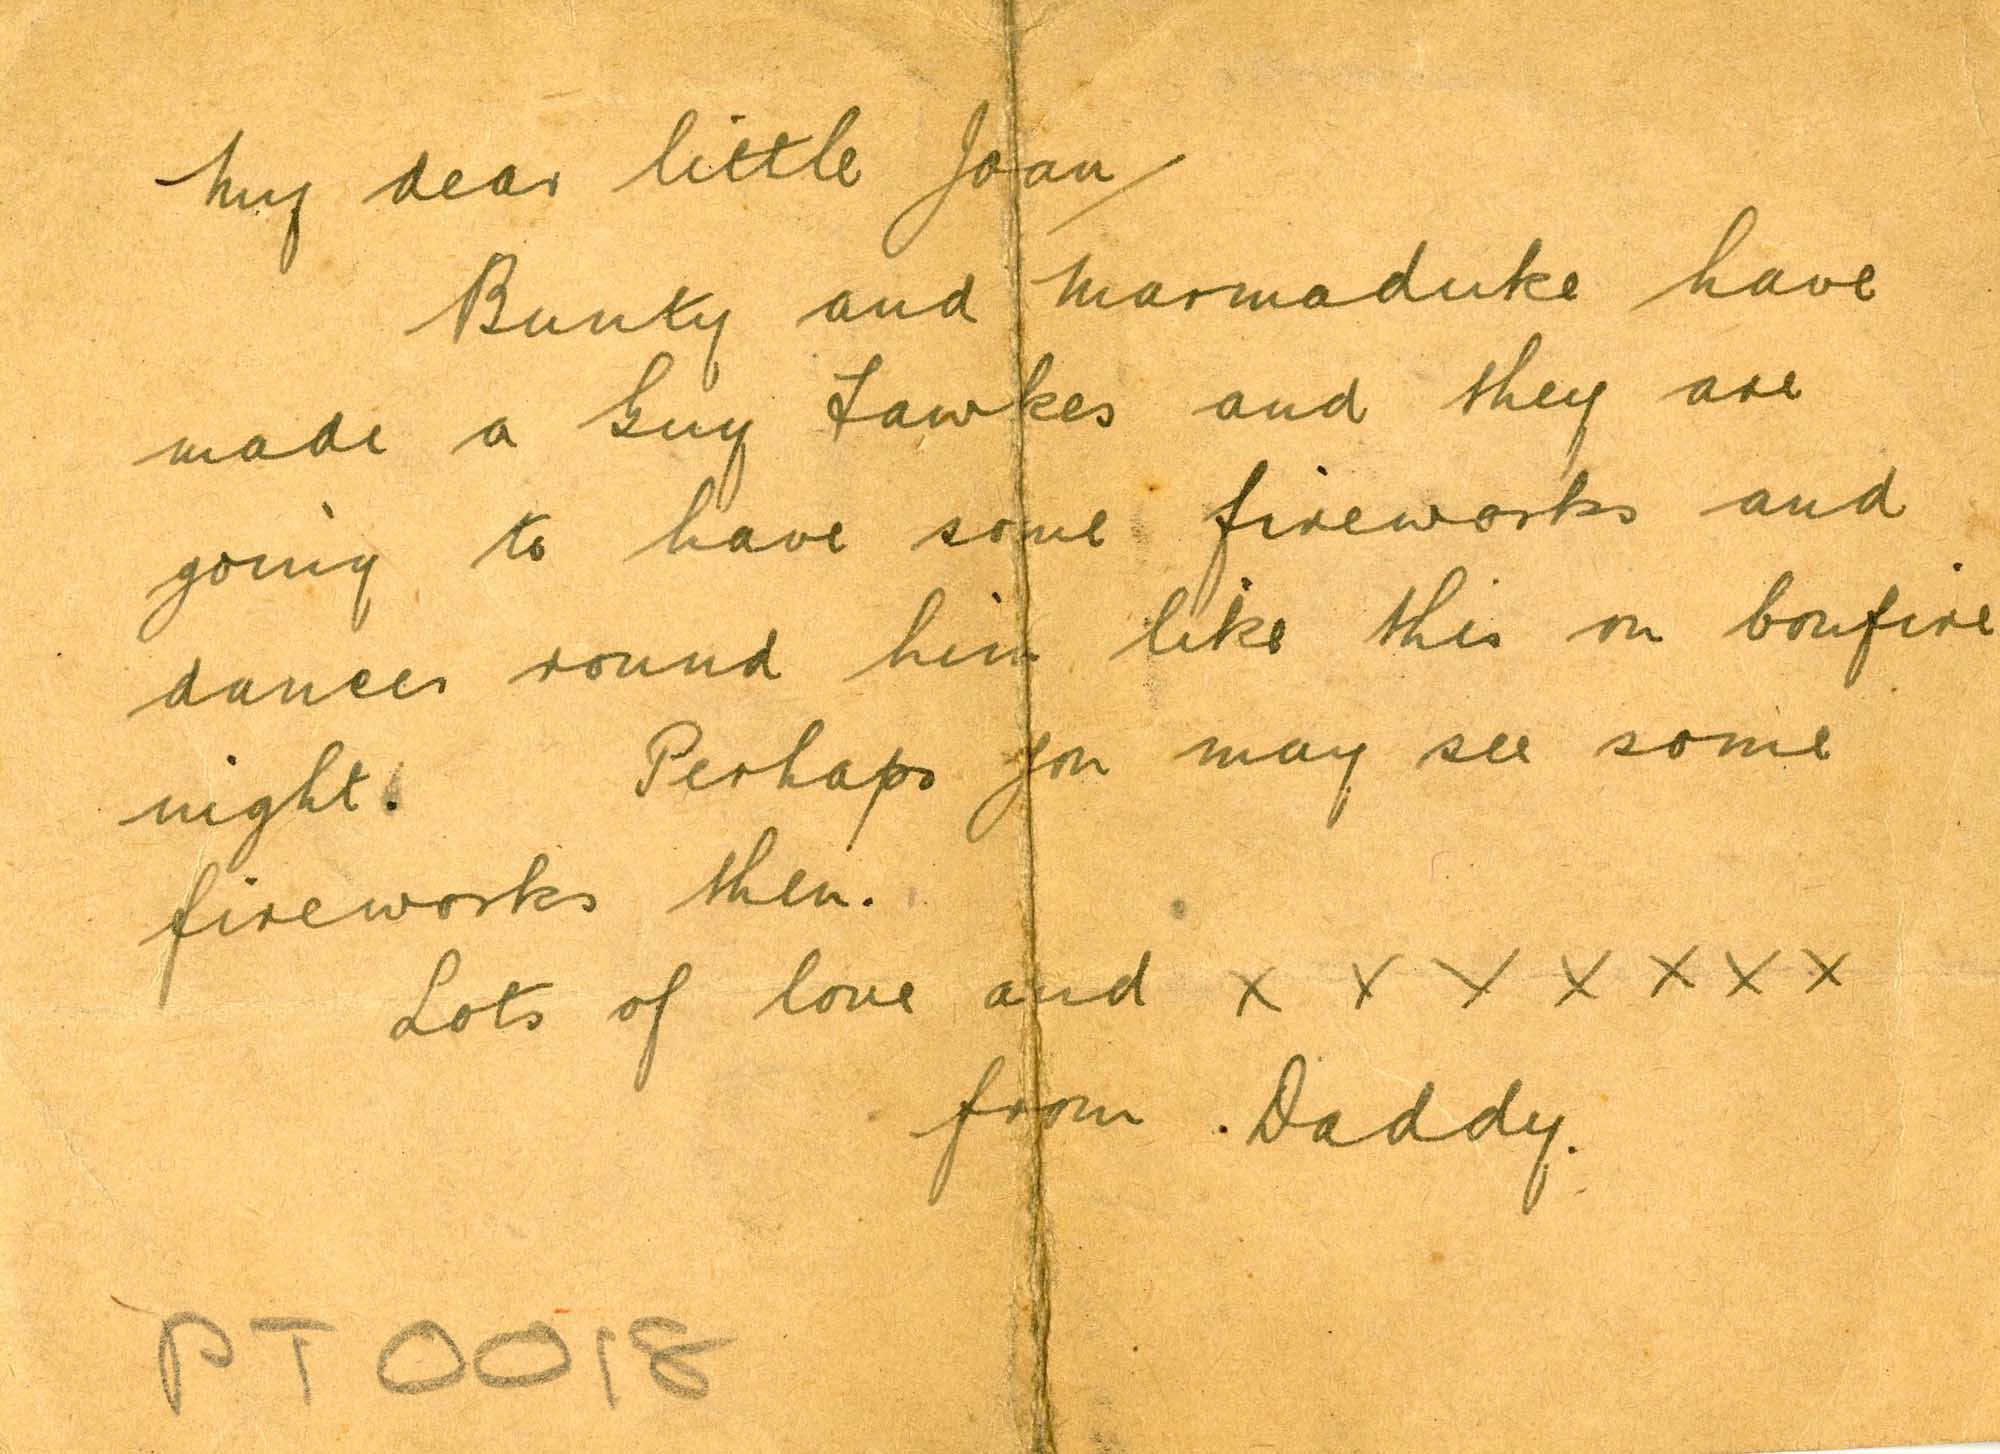 My dear little Joan/
Bunty and Marmaduke have
made a Guy Fawkes and they are
going to have some fireworks and
dances round him like this on bonfire
night. Perhaps you may see some
fireworks then.
Lots of love and x x x x x x x
from Daddy.
PT0018